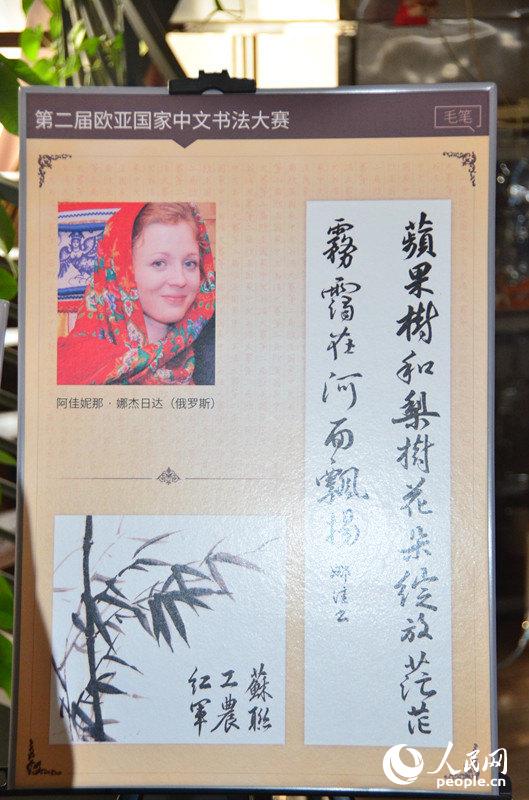 第二届欧亚国家中文书法大赛
毛笔
阿佳妮那·娜杰日达（俄罗斯）
蘋果樹和梨樹花朵綻放茫茫
霧靄在河面飄揚
娜佳书
蘇聯
工農
紅軍
人民网
people.cn